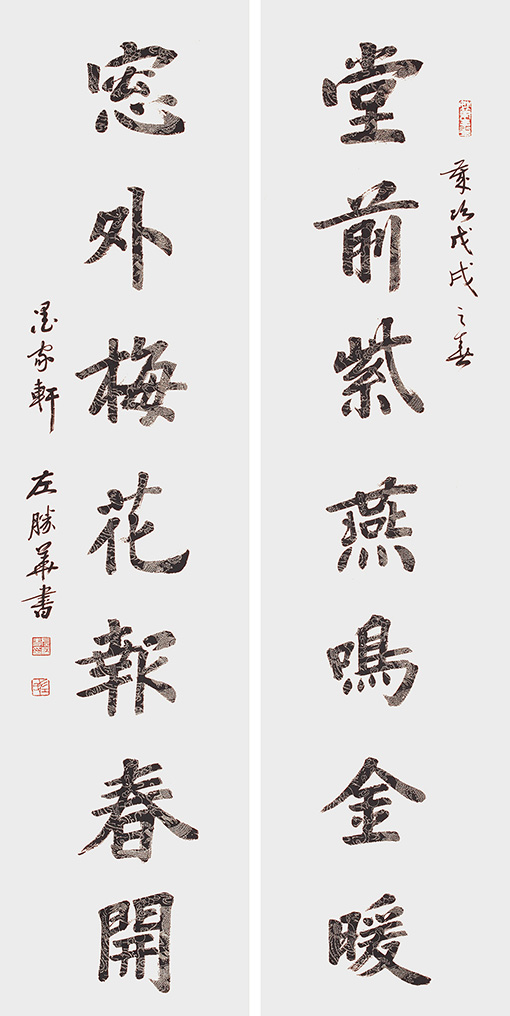 歲次戊戌之春
堂前紫燕鳴金暖
窓外梅花報春開
墨家軒 左勝華書